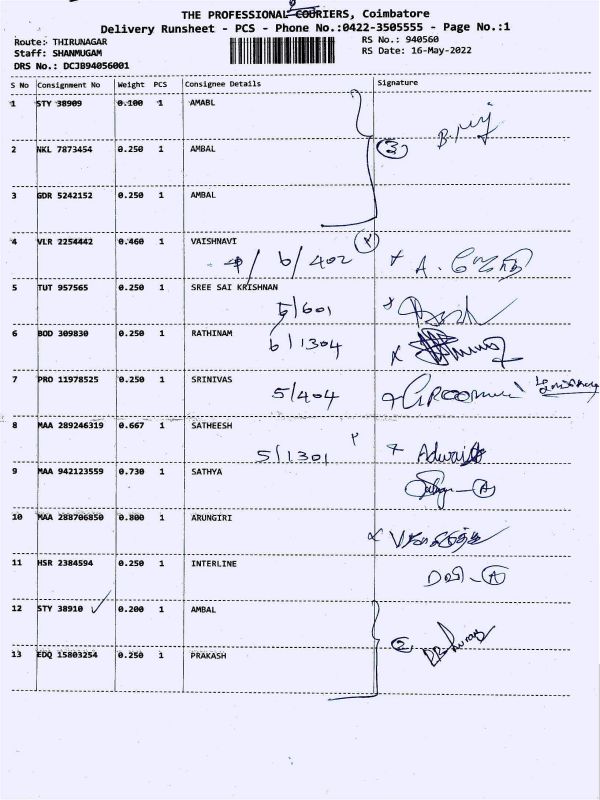 THE PROFESSIONAL COURIERS, Coimbatore
Delivery Runsheet - PCS - Phone No.:0422-3505555 - Page No.:1
Route: THIRUNAGAR RS No.: 940560
Staff: SHANMUGAM RS Date: 16-May-2022
DRS No.: DCJB94056001
S No Consignment No Weight PCS Consignee Details Signature
1 STY 38909 0.100 1 AMABL
2 NKL 7873454 0.250 1 AMBAL 3
3 GDR 5242152 0.250 1 AMBAL
4 VLR 2254442 0.460 1 VAISHNAVI
6/402 A.
5 TUT 957565 0.250 1 SREE SAI KRISHNAN
5/601
6 BOD 309830 0.250 1 RATHINAM
6/1304
7 PRO 11978525 0.250 1 SRINIVAS
5/404
8 MAA 289246319 0.667 1 SATHEESH
5/1301
9 MAA 942123559 0.730 1 SATHYA
A
10 MAA 288706850 0.800 1 ARUNGIRI
11 HSR 2384594 0.250 1 INTERLINE
A
12 STY 38910 0.200 1 AMBAL
2
13 EDQ 15803254 0.250 1 PRAKASH